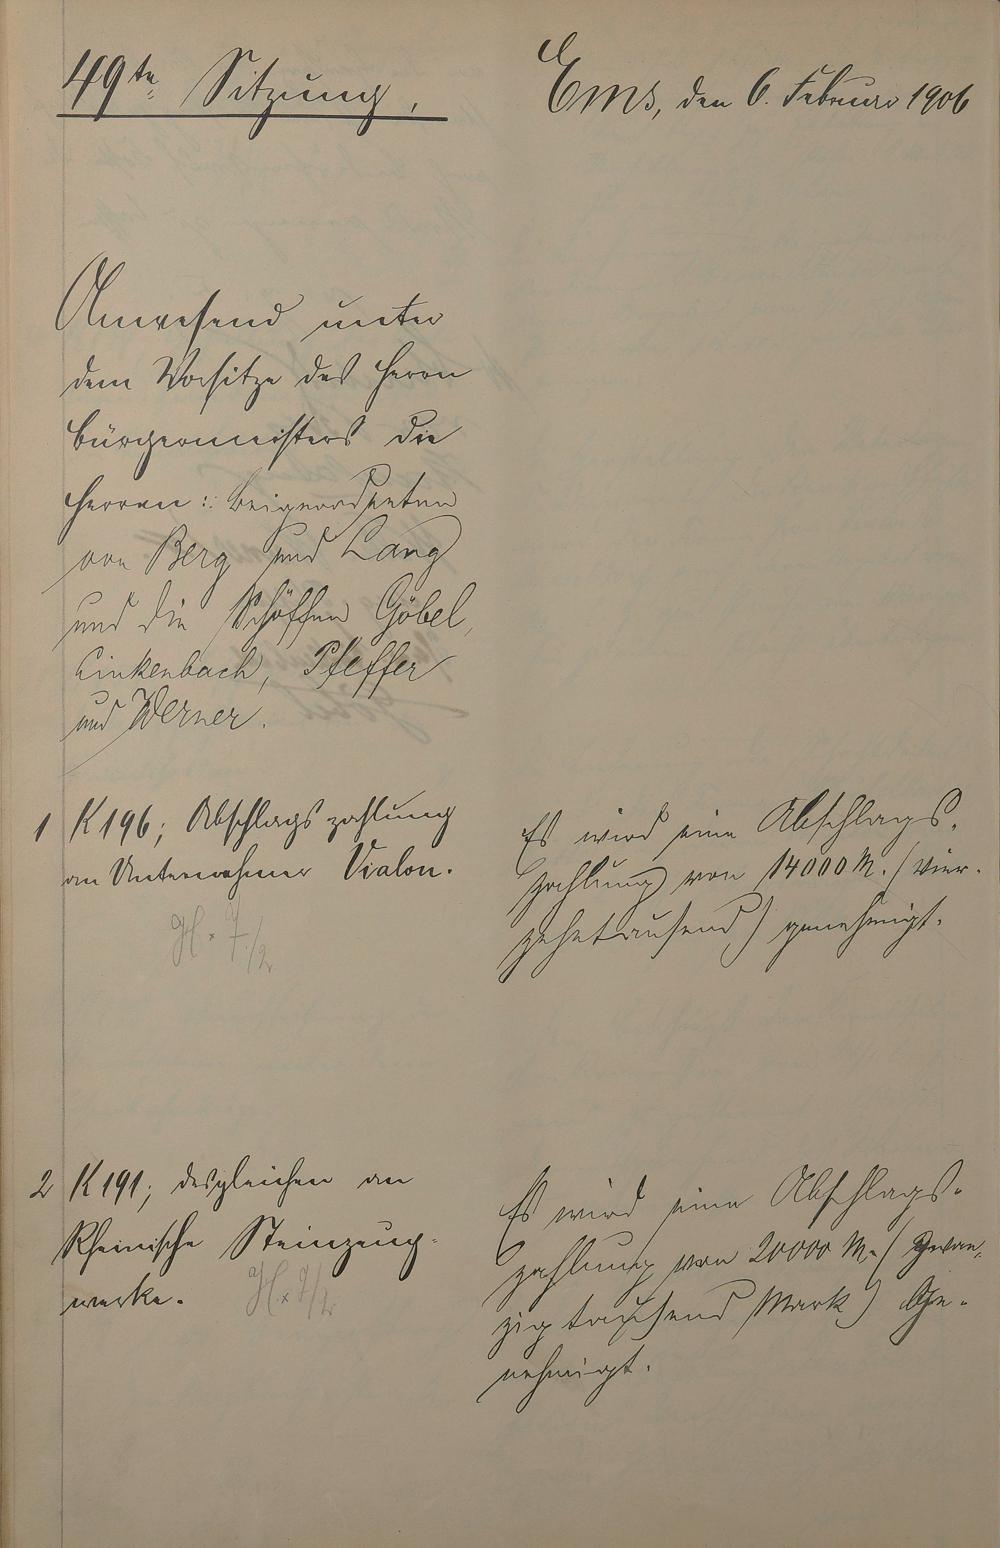 49te Sitzung.
Ems, den 6. Februar 1906
Anwesend unter
dem Vorsitze des Herrn
Bürgermeisters die
Herren: Beigeordneten
von Berg und Lang
und die Schöffen Göbel,
Linkenbach, Pfeffer
und Werner.
1 K 196; Abschlagszahlung
an Unternehmer Vialon.
Es wird eine Abschlags-
zahlung von 14000 M. (vier-
zehntausend) genehmigt.
2 K 191; desgleichen an
Rheinische Steinzeug-
werke.
Es wird eine Abschlags-
zahlung von 20000 M. (Zwan-
zig tausend Mark) Ge-
nehmigt.